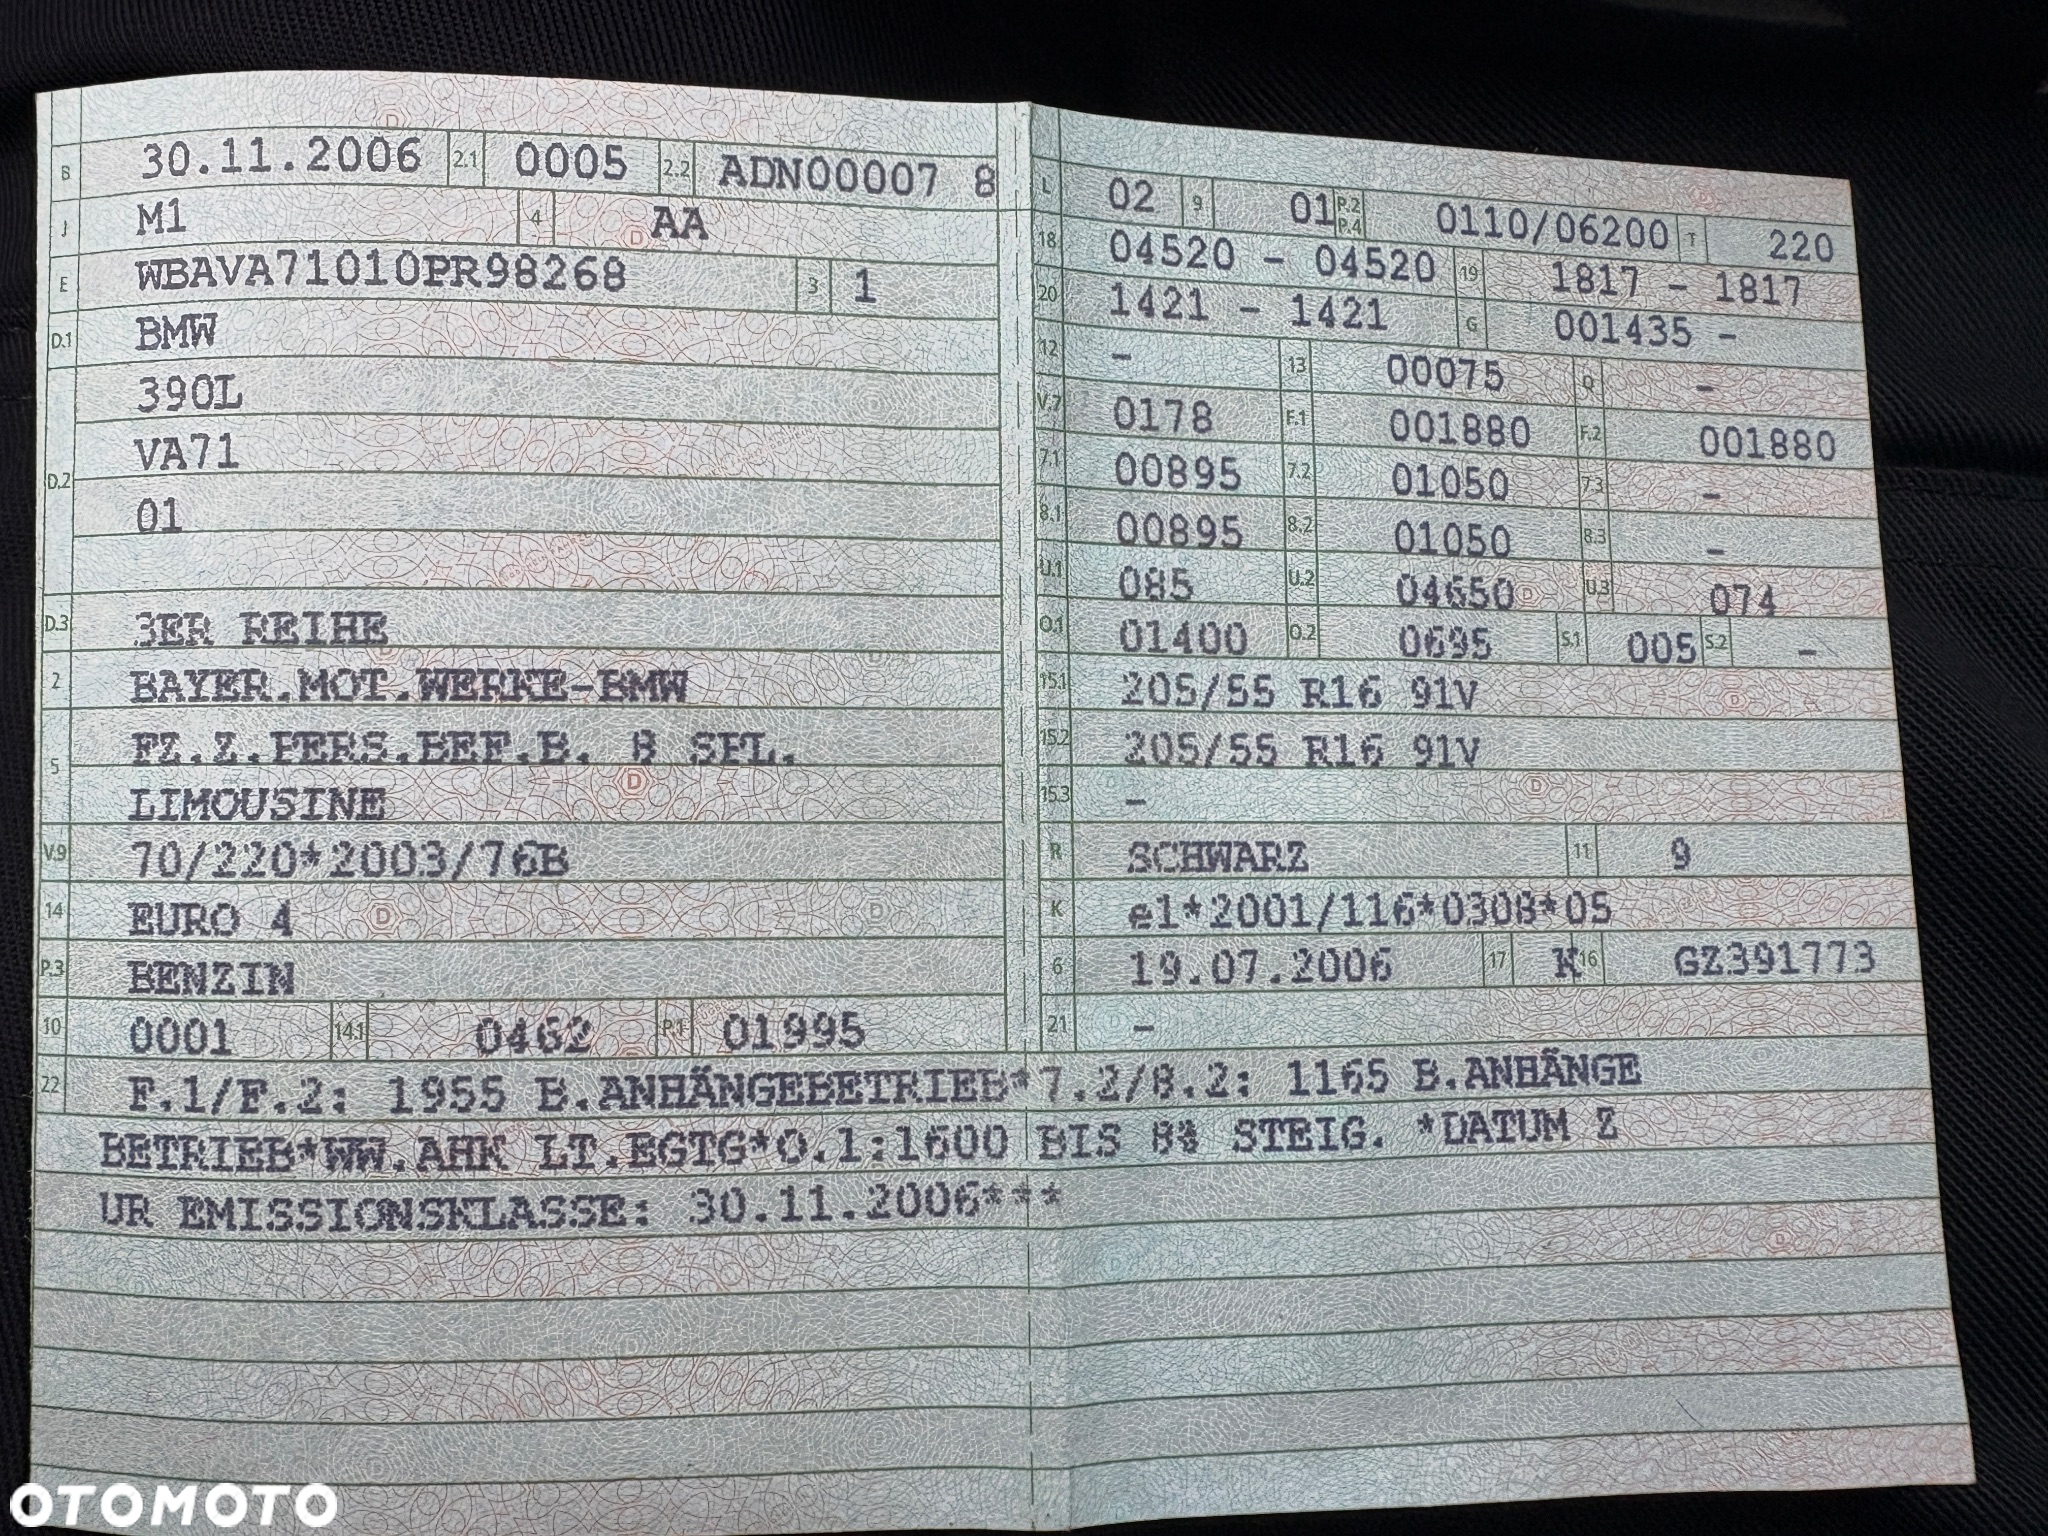 B 30.11.2006 2.1 0005 2.2 ADN00007 8
J M1 4 AA
E WBAVA71010PR98268 3 1
D.1 BMW
390L
D.2 VA71
01
D.3 3ER REIHE
2 BAYER.MOT.WERKE-BMW
5 FZ.Z.PERS.BEF.B. 8 SPL.
LIMOUSINE
V.9 70/220*2003/76B
14 EURO 4
P.3 BENZIN
10 0001 14.1 0462 P.1 01995
L 02 9 01 P.2 P.4 0110/06200 T 220
18 04520 - 04520 19 1817 - 1817
20 1421 - 1421 G 001435 -
12 - 13 00075 Q -
V.7 0178 F.1 001880 F.2 001880
7.1 00895 7.2 01050 7.3 -
8.1 00895 8.2 01050 8.3 -
U.1 085 U.2 04650 U.3 074
O.1 01400 O.2 0695 S.1 005 S.2 -
15.1 205/55 R16 91V
15.2 205/55 R16 91V
15.3 -
R SCHWARZ 11 9
K e1*2001/116*0308*05
6 19.07.2006 17 K 16 GZ391773
21 -
22 F.1/F.2: 1955 B.ANHÄNGEBETRIEB*7.2/8.2: 1165 B.ANHÄNGE
BETRIEB*WW.AHK LT.EGTG*O.1:1600 BIS 8% STEIG. *DATUM Z
UR EMISSIONSKLASSE: 30.11.2006***
OTOMOTO